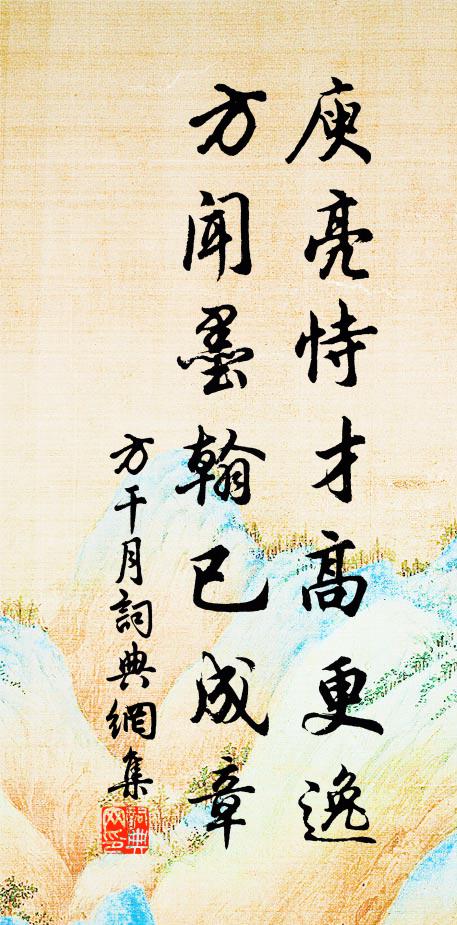 庾亮恃才高更逸
方聞墨翰已成章
方干月詞典網集
詞典
网印